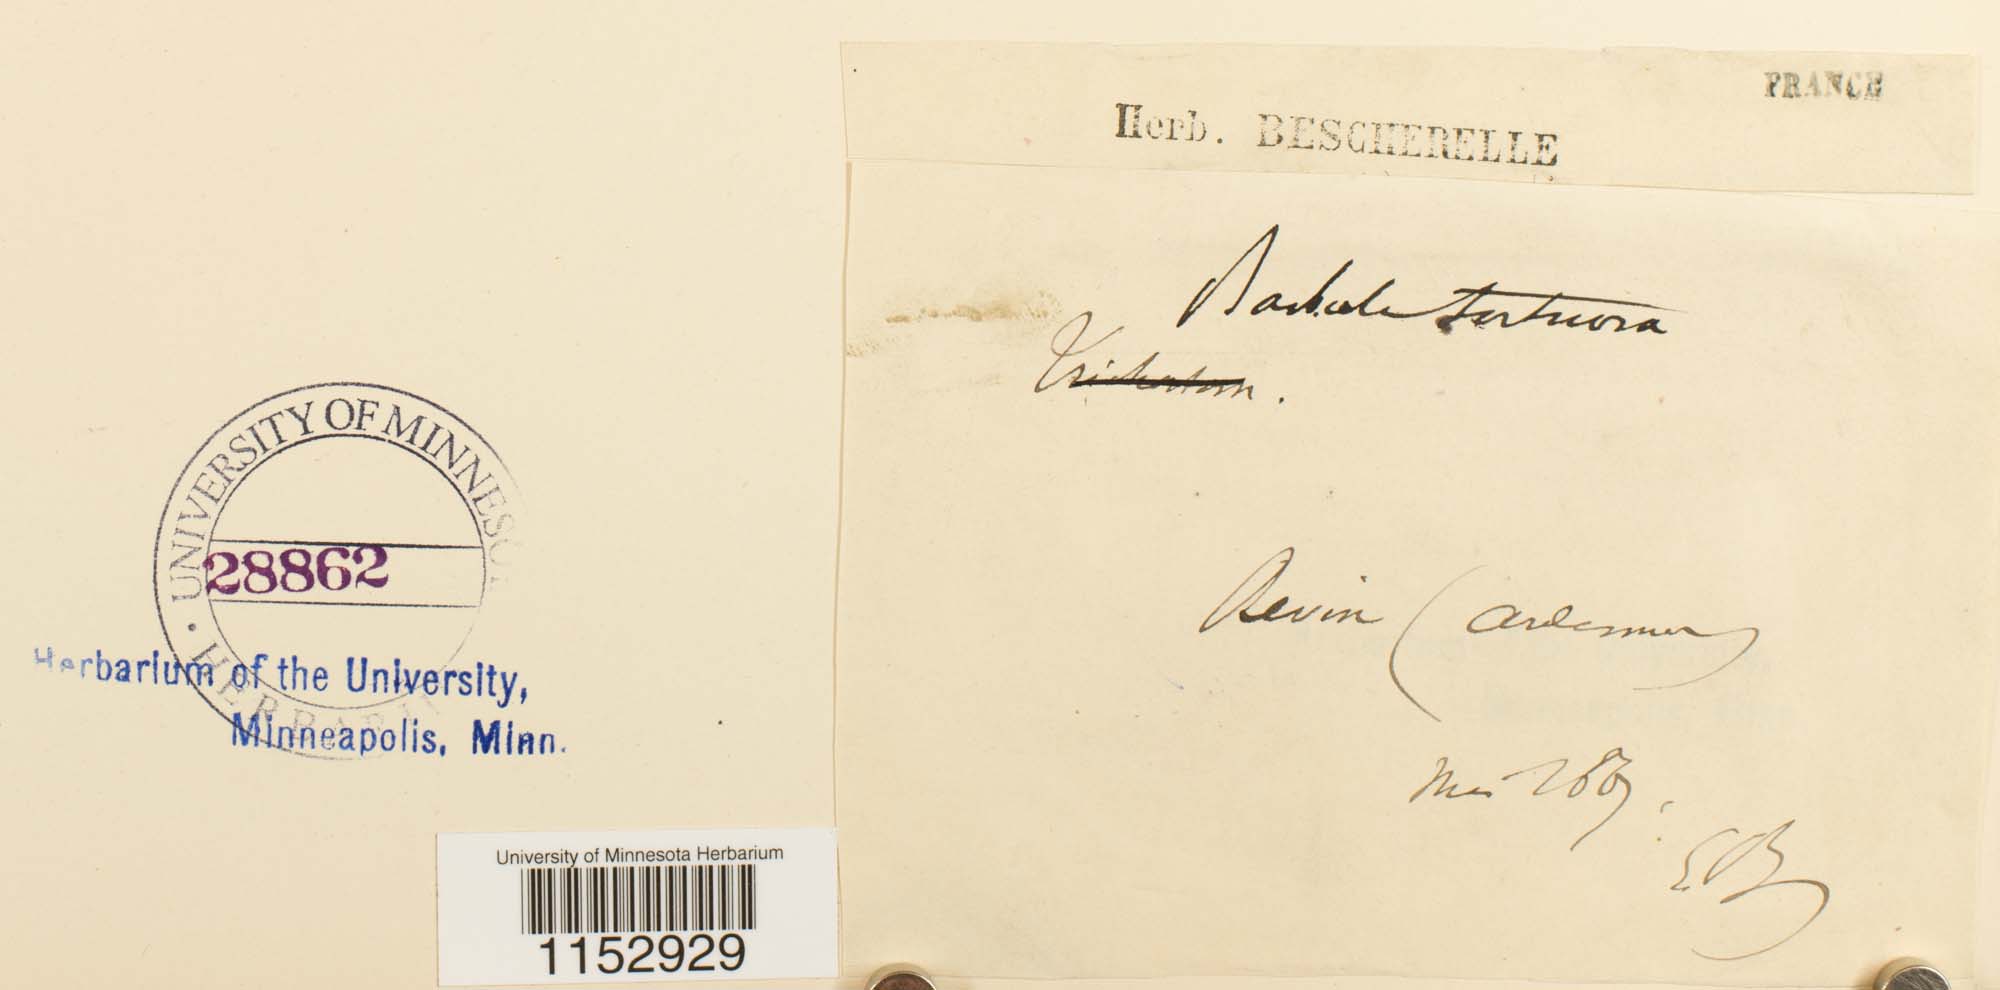 FRANCE
Herb. BESCHERELLE
Barbula tortuosa
Trichostom.
Revin (Ardennes)
Mai 1867.
E.B.
UNIVERSITY OF MINNESO
28862
HERBARIU
Herbarium of the University,
Minneapolis, Minn.
University of Minnesota Herbarium
1152929